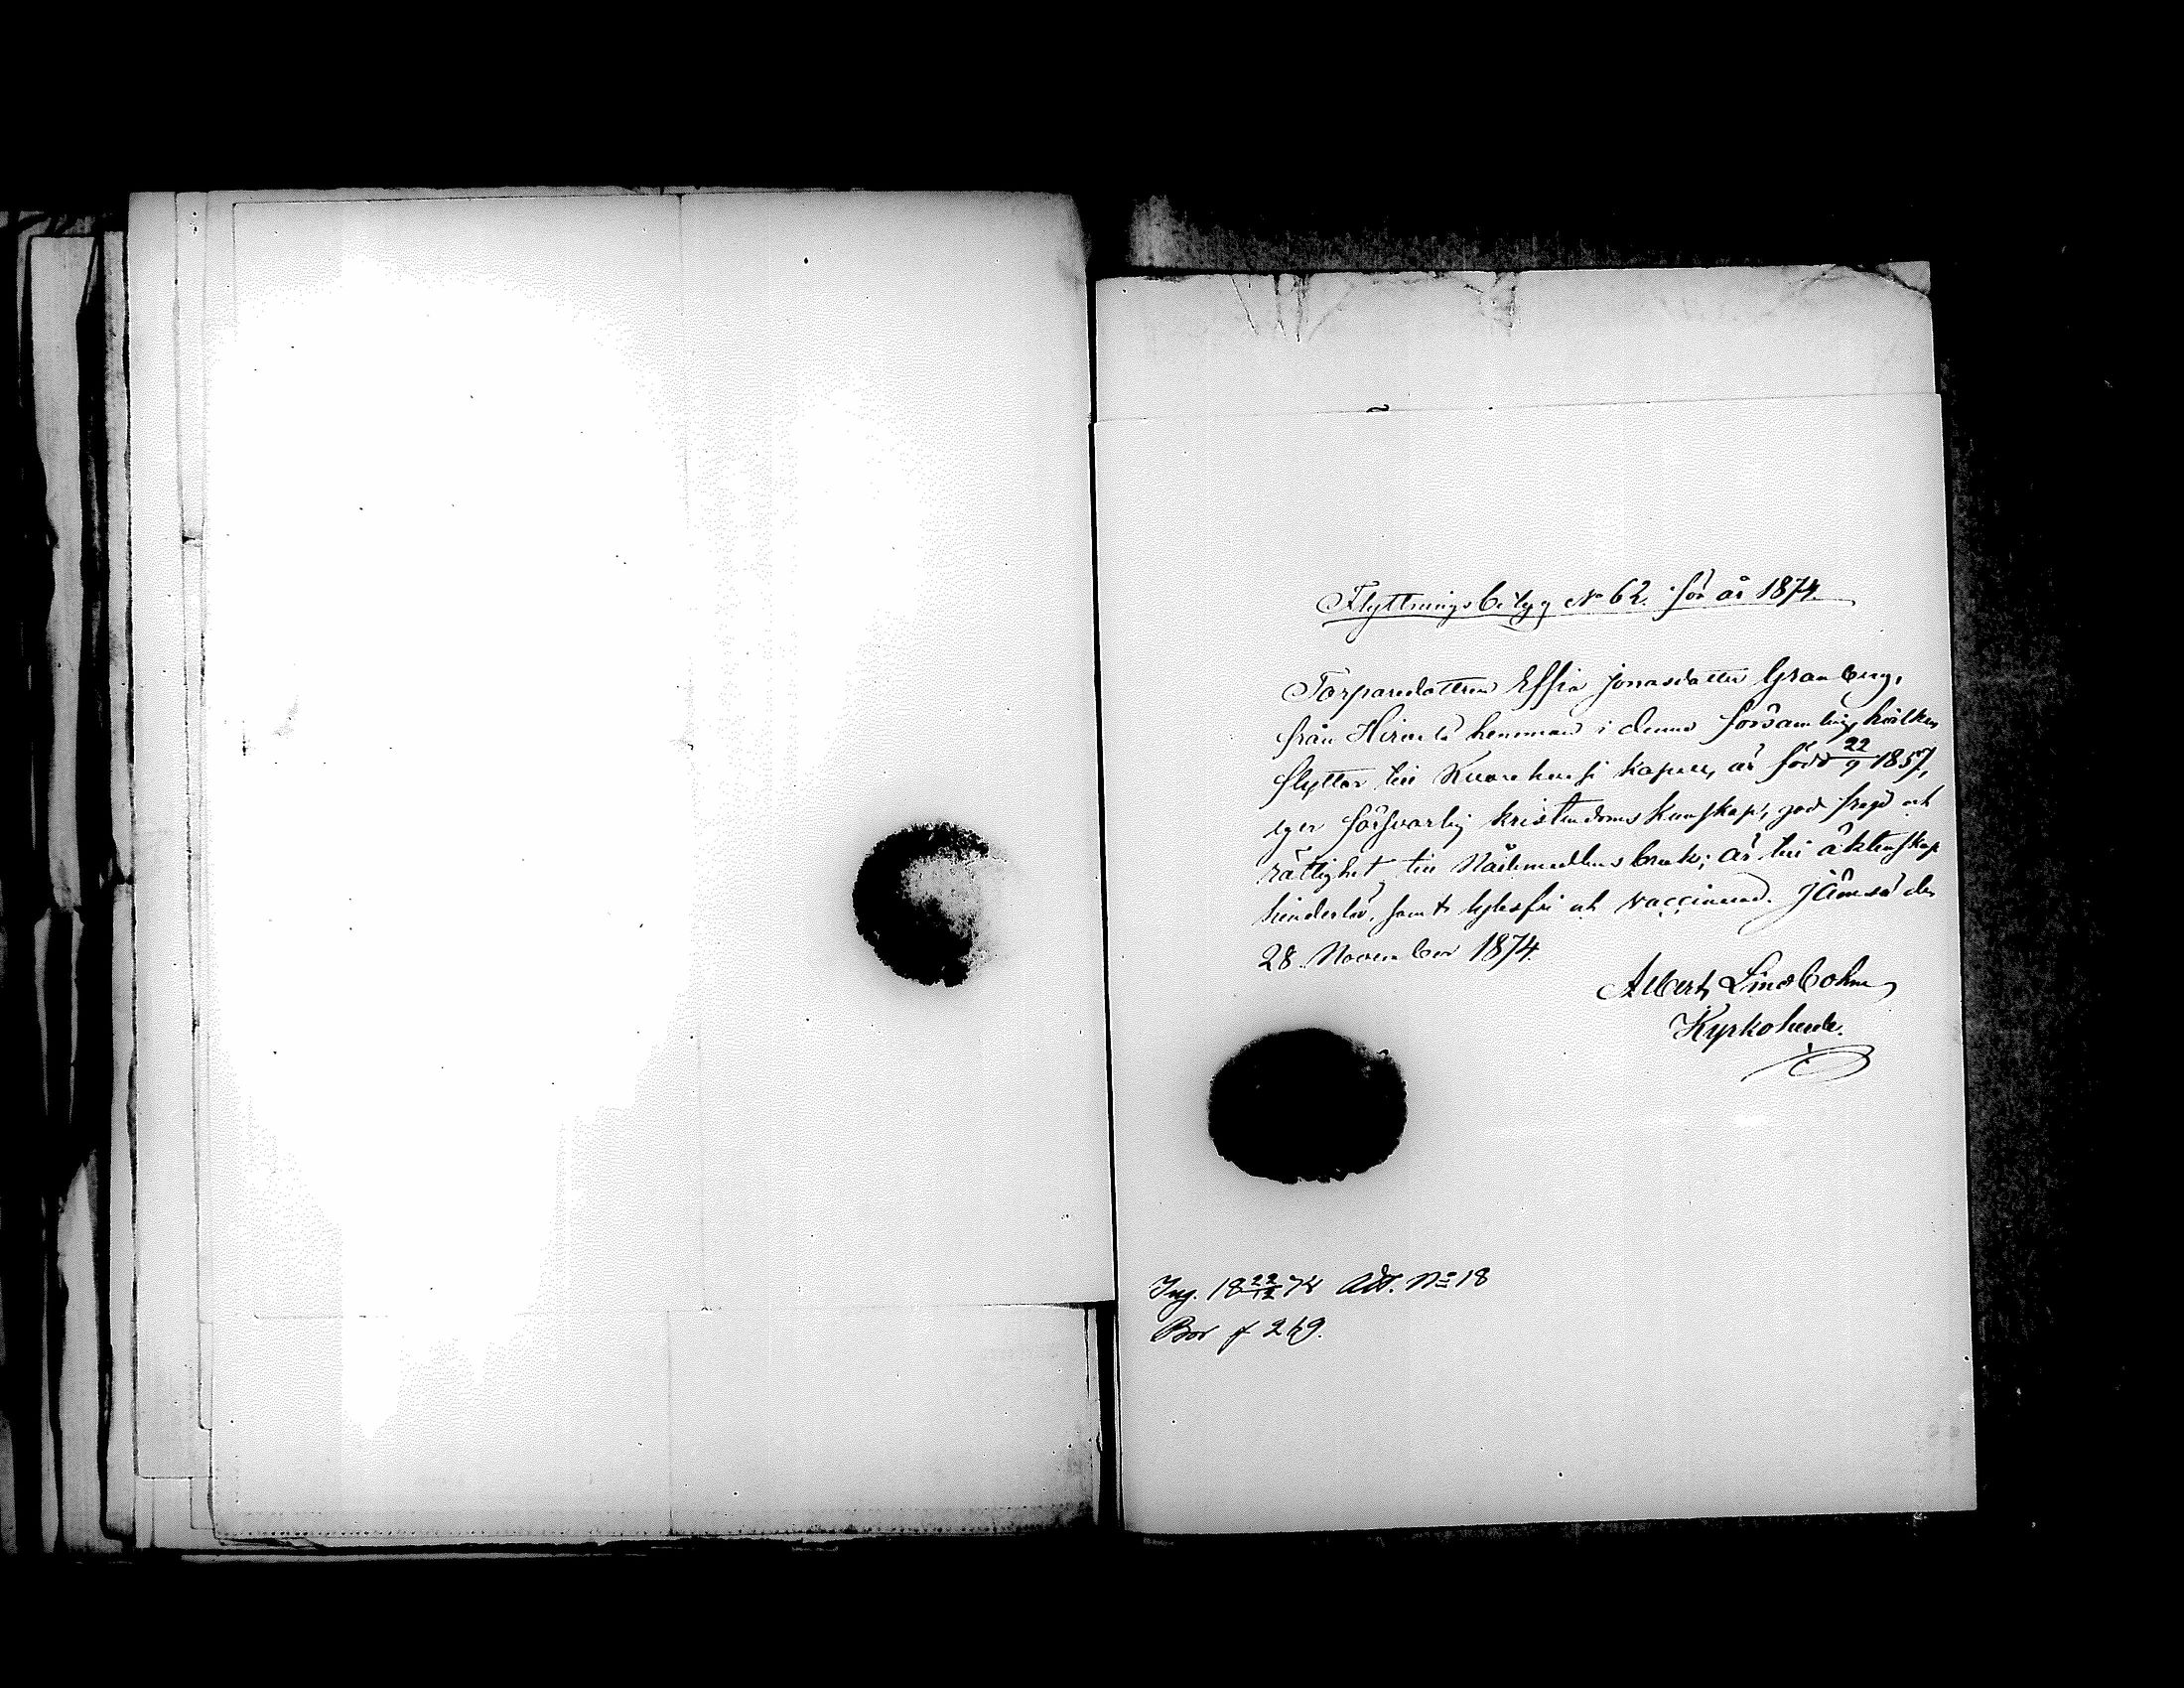 Flyttningsbetyg No 62. för år 1874.
Torparedottren Effia Jonasdotter Granberg,
från Hirvelä hemman i denna församling, hvilken
flyttar till Kuorehvesi kapell, är född 22/9 1857,
eger försvarlig kristendoms kunskap, god frejd och
rättighet till Nådemedlens bruk; är till äktenskap
hinderlös, samt lytesfri och vaccinerad. Jämsä den
28 November 1874.
Albert Lindbohm
Kyrkoherde.
Ing. 18 22/12 74 Att. No 18
Bor f 269.